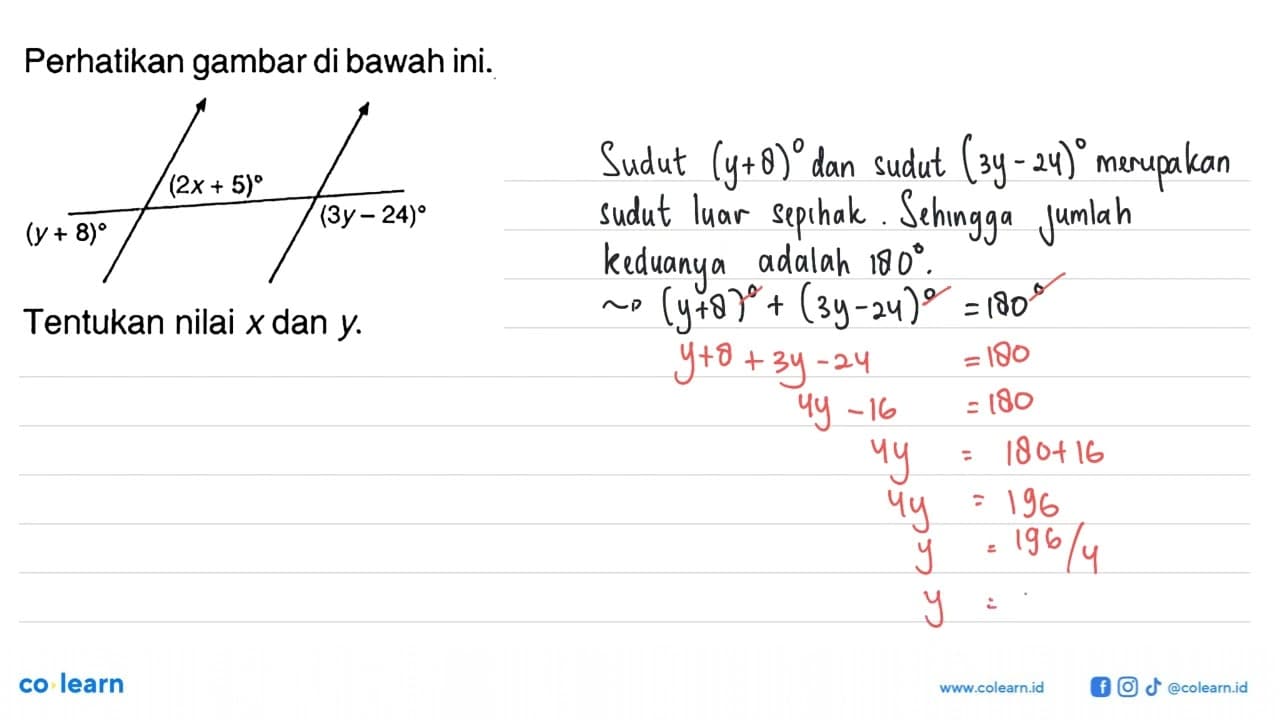 Perhatikan gambar di bawah ini.
(2x + 5)°
(y + 8)°
(3y – 24)°
Tentukan nilai x dan y.
Sudut (y+8)° dan sudut (3y - 24)° merupakan
sudut luar sepihak. Sehingga jumlah
keduanya adalah 180°.
~> (y+8)° + (3y-24)° = 180°
y+8 + 3y - 24 = 180
4y - 16 = 180
4y = 180+16
4y = 196
y = 196/4
y =
co learn
www.colearn.id
@colearn.id